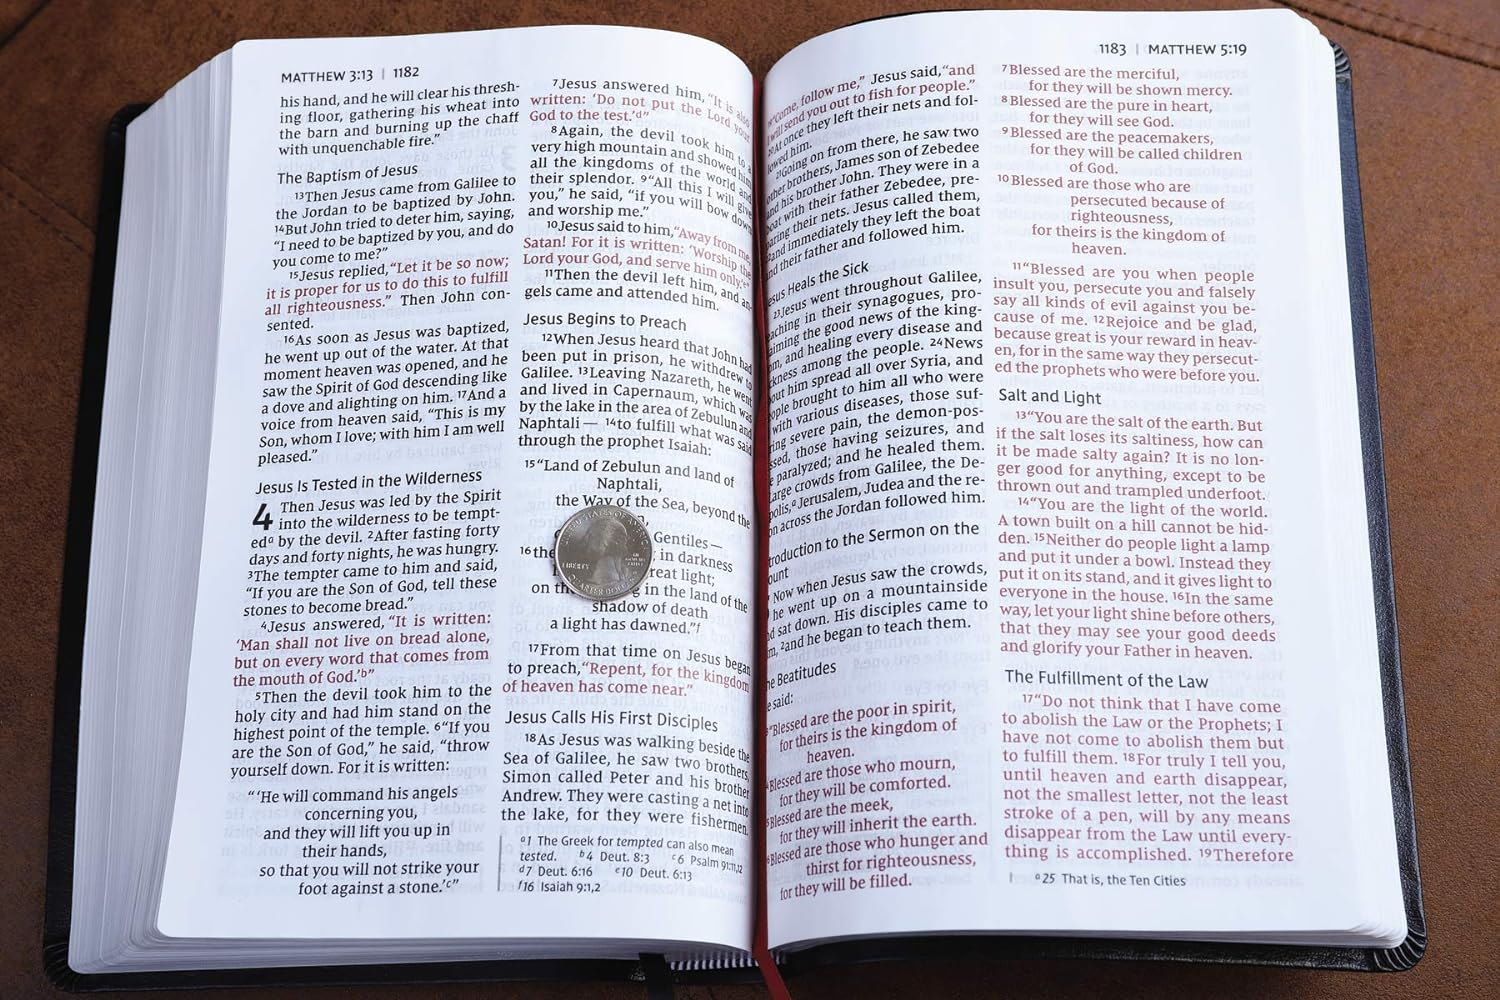 MATTHEW 3:13 | 1182
his hand, and he will clear his thresh-
ing floor, gathering his wheat into
the barn and burning up the chaff
with unquenchable fire.”
The Baptism of Jesus
13Then Jesus came from Galilee to
the Jordan to be baptized by John.
14But John tried to deter him, saying,
“I need to be baptized by you, and do
you come to me?”
15Jesus replied, “Let it be so now;
it is proper for us to do this to fulfill
all righteousness.” Then John con-
sented.
16As soon as Jesus was baptized,
he went up out of the water. At that
moment heaven was opened, and he
saw the Spirit of God descending like
a dove and alighting on him. 17And a
voice from heaven said, “This is my
Son, whom I love; with him I am well
pleased.”
Jesus Is Tested in the Wilderness
4 Then Jesus was led by the Spirit
into the wilderness to be tempt-
eda by the devil. 2After fasting forty
days and forty nights, he was hungry.
3The tempter came to him and said,
“If you are the Son of God, tell these
stones to become bread.”
4Jesus answered, “It is written:
‘Man shall not live on bread alone,
but on every word that comes from
the mouth of God.’b”
5Then the devil took him to the
holy city and had him stand on the
highest point of the temple. 6“If you
are the Son of God,” he said, “throw
yourself down. For it is written:
“‘He will command his angels
concerning you,
and they will lift you up in
their hands,
so that you will not strike your
foot against a stone.’c”
7Jesus answered him, “It is also
written: ‘Do not put the Lord your
God to the test.’d”
8Again, the devil took him to a
very high mountain and showed him
all the kingdoms of the world and
their splendor. 9“All this I will give
you,” he said, “if you will bow down
and worship me.”
10Jesus said to him, “Away from me,
Satan! For it is written: ‘Worship the
Lord your God, and serve him only.’e”
11Then the devil left him, and an-
gels came and attended him.
Jesus Begins to Preach
12When Jesus heard that John had
been put in prison, he withdrew to
Galilee. 13Leaving Nazareth, he went
and lived in Capernaum, which was
by the lake in the area of Zebulun and
Naphtali— 14to fulfill what was said
through the prophet Isaiah:
15“Land of Zebulun and land of
Naphtali,
the Way of the Sea, beyond the
Gentiles—
16the in darkness
LIBERTY
QUARTER DOLLAR
on the in the land of the
shadow of death
a light has dawned.”f
17From that time on Jesus began
to preach, “Repent, for the kingdom
of heaven has come near.”
Jesus Calls His First Disciples
18As Jesus was walking beside the
Sea of Galilee, he saw two brothers,
Simon called Peter and his brother
Andrew. They were casting a net into
the lake, for they were fishermen.
a1 The Greek for tempted can also mean
tested. b4 Deut. 8:3 c6 Psalm 91:11,12
d7 Deut. 6:16 e10 Deut. 6:13
f16 Isaiah 9:1,2
1183 | MATTHEW 5:19
19“Come, follow me,” Jesus said, “and
I will send you out to fish for people.”
20At once they left their nets and fol-
lowed him.
21Going on from there, he saw two
other brothers, James son of Zebedee
and his brother John. They were in a
boat with their father Zebedee, pre-
paring their nets. Jesus called them,
22and immediately they left the boat
and their father and followed him.
Jesus Heals the Sick
23Jesus went throughout Galilee,
teaching in their synagogues, pro-
claiming the good news of the king-
dom, and healing every disease and
sickness among the people. 24News
about him spread all over Syria, and
people brought to him all who were
ill with various diseases, those suf-
fering severe pain, the demon-pos-
sessed, those having seizures, and
the paralyzed; and he healed them.
25Large crowds from Galilee, the De-
capolis,a Jerusalem, Judea and the re-
gion across the Jordan followed him.
Introduction to the Sermon on the
Mount
Now when Jesus saw the crowds,
he went up on a mountainside
and sat down. His disciples came to
him, 2and he began to teach them.
The Beatitudes
He said:
3“Blessed are the poor in spirit,
for theirs is the kingdom of
heaven.
4Blessed are those who mourn,
for they will be comforted.
5Blessed are the meek,
for they will inherit the earth.
6Blessed are those who hunger and
thirst for righteousness,
for they will be filled.
7Blessed are the merciful,
for they will be shown mercy.
8Blessed are the pure in heart,
for they will see God.
9Blessed are the peacemakers,
for they will be called children
of God.
10Blessed are those who are
persecuted because of
righteousness,
for theirs is the kingdom of
heaven.
11“Blessed are you when people
insult you, persecute you and falsely
say all kinds of evil against you be-
cause of me. 12Rejoice and be glad,
because great is your reward in heav-
en, for in the same way they persecut-
ed the prophets who were before you.
Salt and Light
13“You are the salt of the earth. But
if the salt loses its saltiness, how can
it be made salty again? It is no lon-
ger good for anything, except to be
thrown out and trampled underfoot.
14“You are the light of the world.
A town built on a hill cannot be hid-
den. 15Neither do people light a lamp
and put it under a bowl. Instead they
put it on its stand, and it gives light to
everyone in the house. 16In the same
way, let your light shine before others,
that they may see your good deeds
and glorify your Father in heaven.
The Fulfillment of the Law
17“Do not think that I have come
to abolish the Law or the Prophets; I
have not come to abolish them but
to fulfill them. 18For truly I tell you,
until heaven and earth disappear,
not the smallest letter, not the least
stroke of a pen, will by any means
disappear from the Law until every-
thing is accomplished. 19Therefore
a25 That is, the Ten Cities